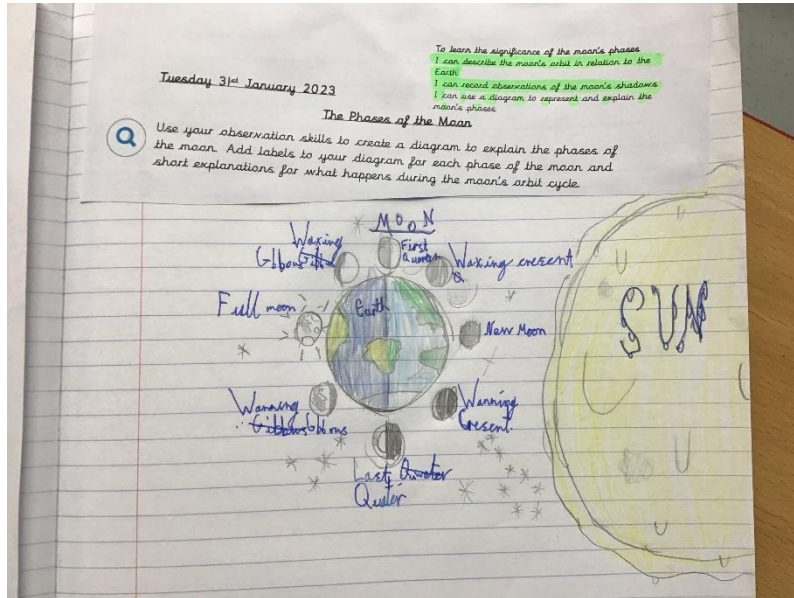 To learn the significance of the moon's phases
I can describe the moon's orbit in relation to the
Earth
I can record observations of the moon's shadows
I can use a diagram to represent and explain the
moon's phases
Tuesday 31st January 2023
The Phases of the Moon
Use your observation skills to create a diagram to explain the phases of
the moon. Add labels to your diagram for each phase of the moon and
short explanations for what happens during the moon's orbit cycle
MOON
Waxing
Gbbous
First
Waxing cresent
Full moon
Earth
New Moon
SUN
Wanning
Gbbous
Wanning
Cresent.
Last
Quater